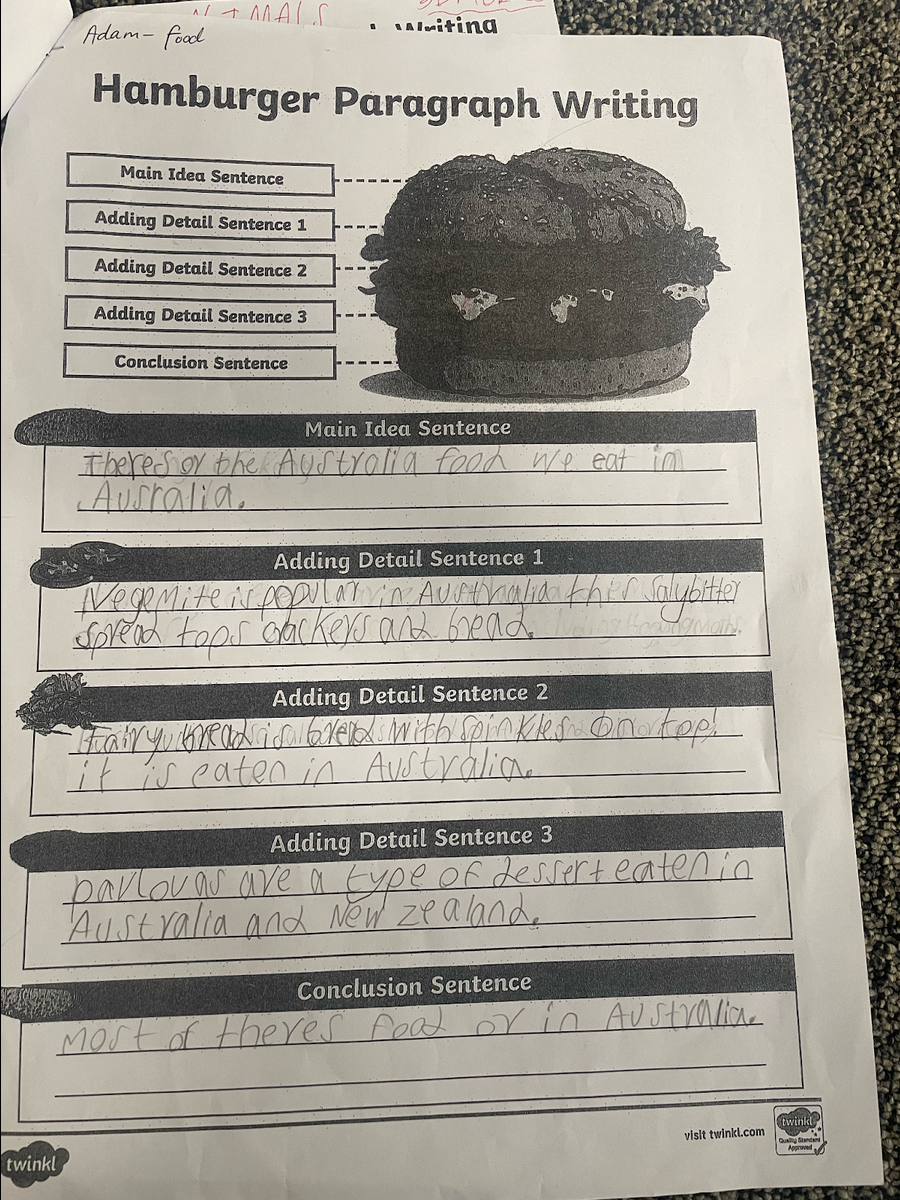 Adam - food
Writing
Hamburger Paragraph Writing
Main Idea Sentence
Adding Detail Sentence 1
Adding Detail Sentence 2
Adding Detail Sentence 3
Conclusion Sentence
Main Idea Sentence
theres or the Australia food we eat in
Ausralia.
Adding Detail Sentence 1
Vegemite is popular in Australia this salybitter
spread tops crackers and bread.
Adding Detail Sentence 2
Fairy bread is bread with spinkles on top!
it is eaten in Australia.
Adding Detail Sentence 3
pavlovas are a type of dessert eaten in
Australia and New zealand.
Conclusion Sentence
most of theres food or in Australia.
visit twinkl.com
twinkl
Quality Standard
Approved
twinkl